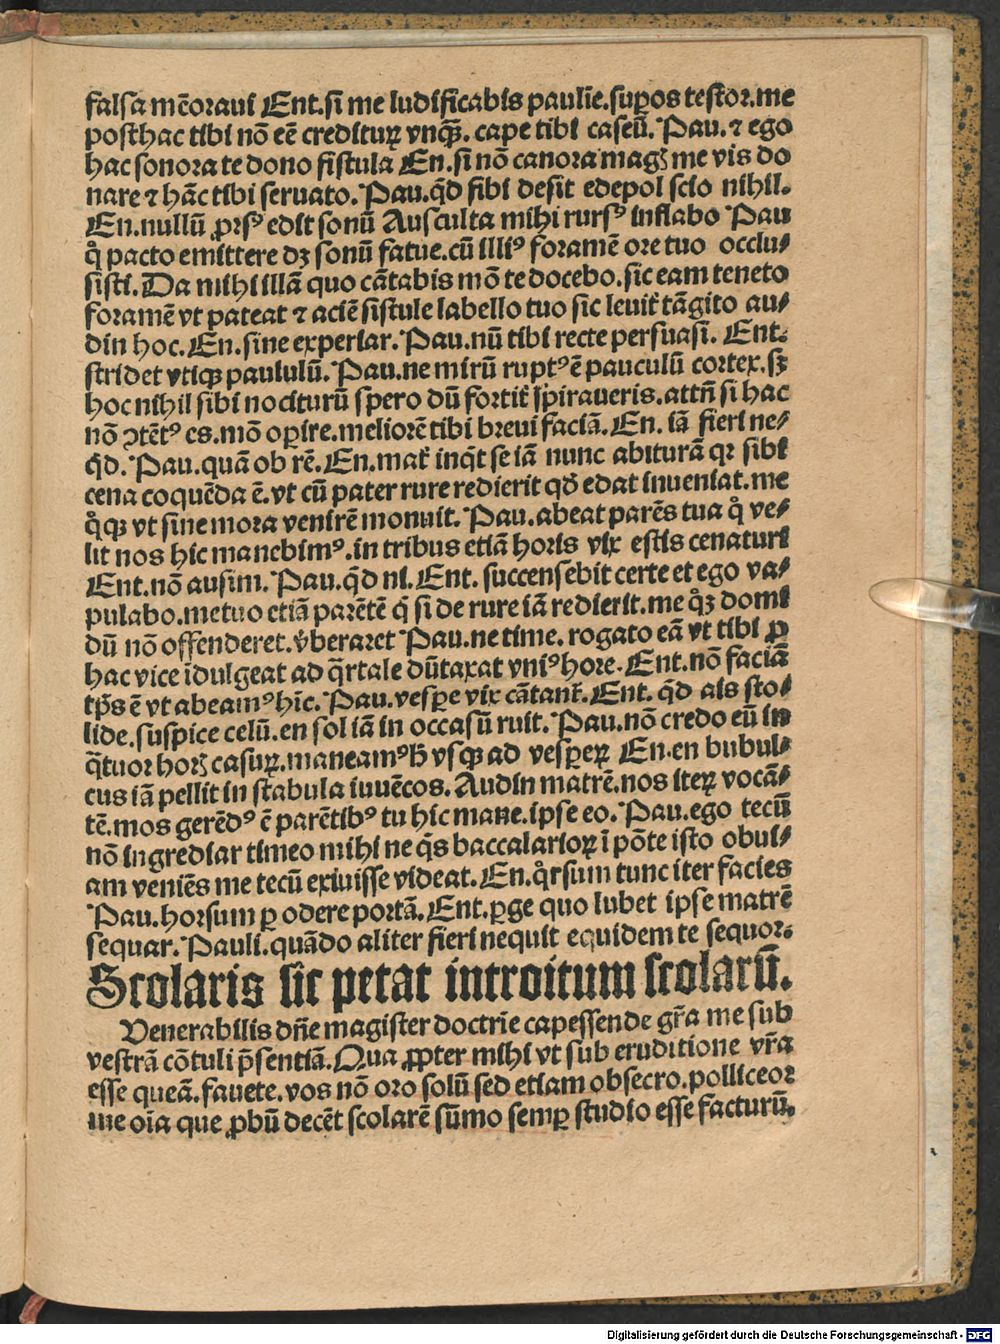 falsa mēoraui Ent.si me ludificabis pauline.suꝑos testor.me
posthac tibi nō eē credituꝝ vnqꝫ̄. cape tibi caseū. Pau. ⁊ ego
hac sonora te dono fistula En.si nō canora magꝫ me vis do
nare ⁊ hāc tibi seruato. Pau.qͥd sibi desit edepol scio nihil.
En.nullū ꝓrsꝰ edit sonū Ausculta mihi rursꝰ inflabo Pau
qͦ pacto emittere dꝫ sonū fatue.cū illiꝰ foramē ore tuo occlu⸗
sisti. Da mihi illā quo cātabis mō te docebo.sic eam teneto
foramē vt pateat ⁊ aciē fistule labello tuo sic leuit᷑ tāgito au⸗
din hoc. En.sine experiar. Pau.nū tibi recte persuasi. Ent.
stridet vtiqꝫ paululū. Pau.ne mirū ruptꝰ ē pauculū cortex.sꝫ
hoc nihil sibi nociturū spero dū fortit᷑ īspiraueris.attn̄ si hac
nō ↄtētꝰ es.mō oꝑire.meliorē tibi breui faciā. En. iā fieri ne⸗
qͥd. Pau.quā ob rē. En.mat᷑ inqͥt se iā nunc abiturā qꝛ sibi
cena coquēda ē.vt cū pater rure redierit qð edat inueniat.me
qͦqꝫ vt sine mora venirē monuit. Pau.abeat parēs tua qͦ ve⸗
lit nos hic manebimꝰ.in tribus etiā horis vix estis cenaturi
Ent.nō ausim. Pau.qͥd ni. Ent. succensebit certe et ego va⸗
pulabo.metuo etiā parētē qͥ si de rure iā redierit.me qͦꝫ domi
dū nō offenderet.v̓beraret Pau.ne time. rogato eā vt tibi ꝓ
hac vice īdulgeat ad qͣrtale dūtaxat vniꝰ hore. Ent.nō faciā
tp̄s ē vt abeamꝰ hīc. Pau.vesꝑe vix cātant᷑. Ent. qͥd ais sto⸗
lide.suspice celū.en sol iā in occasū ruit. Pau.nō credo eū in
qͣtuor horꝫ casuꝝ.maneamꝰ h̄ vsqꝫ ad vesꝑeꝝ En.en bubul⸗
cus iā pellit in stabula iuuēcos. Audin matrē.nos iteꝝ vocā⸗
tē.mos gerēdꝰ ē parētibꝰ tu hic mane.ipse eo. Pau.ego tecū
nō ingrediar timeo mihi ne qͥs baccalarioꝝ ī pōte isto obui⸗
am veniēs me tecū exiuisse videat. En.qͦrsum tunc iter facies
Pau.horsum ꝑ odere portā. Ent.ꝑge quo lubet ipse matrē
sequar. Pauli.quādo aliter fieri nequit equidem te sequor.
Scolaris sic petat introitum scolarū.
Venerabilis dn̄e magister doctrīe capessende gr̄a me sub
vestrā cōtuli p̄sentiā. Qua ꝓpter mihi vt sub eruditione vr̄a
esse queā.fauete.vos nō oro solū sed etiam obsecro.polliceor
me oīa que ꝓbū decēt scolarē sūmo semꝑ studio esse facturū.
Digitalisierung gefördert durch die Deutsche Forschungsgemeinschaft - DFG